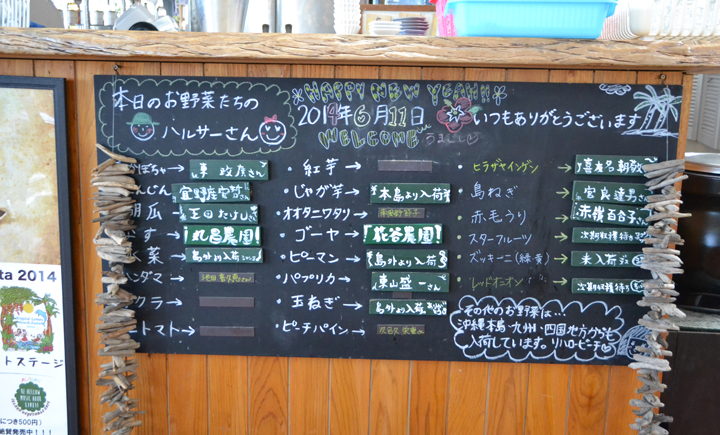 本日のお野菜たちの
ハルサーさん
HAPPY NEW YEAR!!
2014年6月11日
WELCOME
いつもありがとうございます
ぼちゃ→
んじん
宜野座安芸さん
胡瓜→
玉田たけしさん
す→
丸昌農園
菜→
島外より入荷
ンダマ→
クラ→
トマト→
・紅芋→
・じゃが芋→
本島より入荷
・オオタニワタリ→
・ゴーヤ→
花谷農園
・ピーマン→
島外より入荷
・パプリカ→
東山盛一さん
・玉ねぎ→
島外より入荷
・ピーチパイン→
・ヒラザヤインゲン→
喜友名朝敬
・島ねぎ→
宮良達
・赤毛うり→
赤嶺百合子さん
・スターフルーツ→
次期収穫待ち
・ズッキーニ(緑・黄)→
未入荷
・レッドオニオン→
次期収穫待ち
その他のお野菜は…
沖縄本島・九州・四国地方からも
入荷しています。
ta 2014
トステージ
につき500円)
絶賛発売中!!!